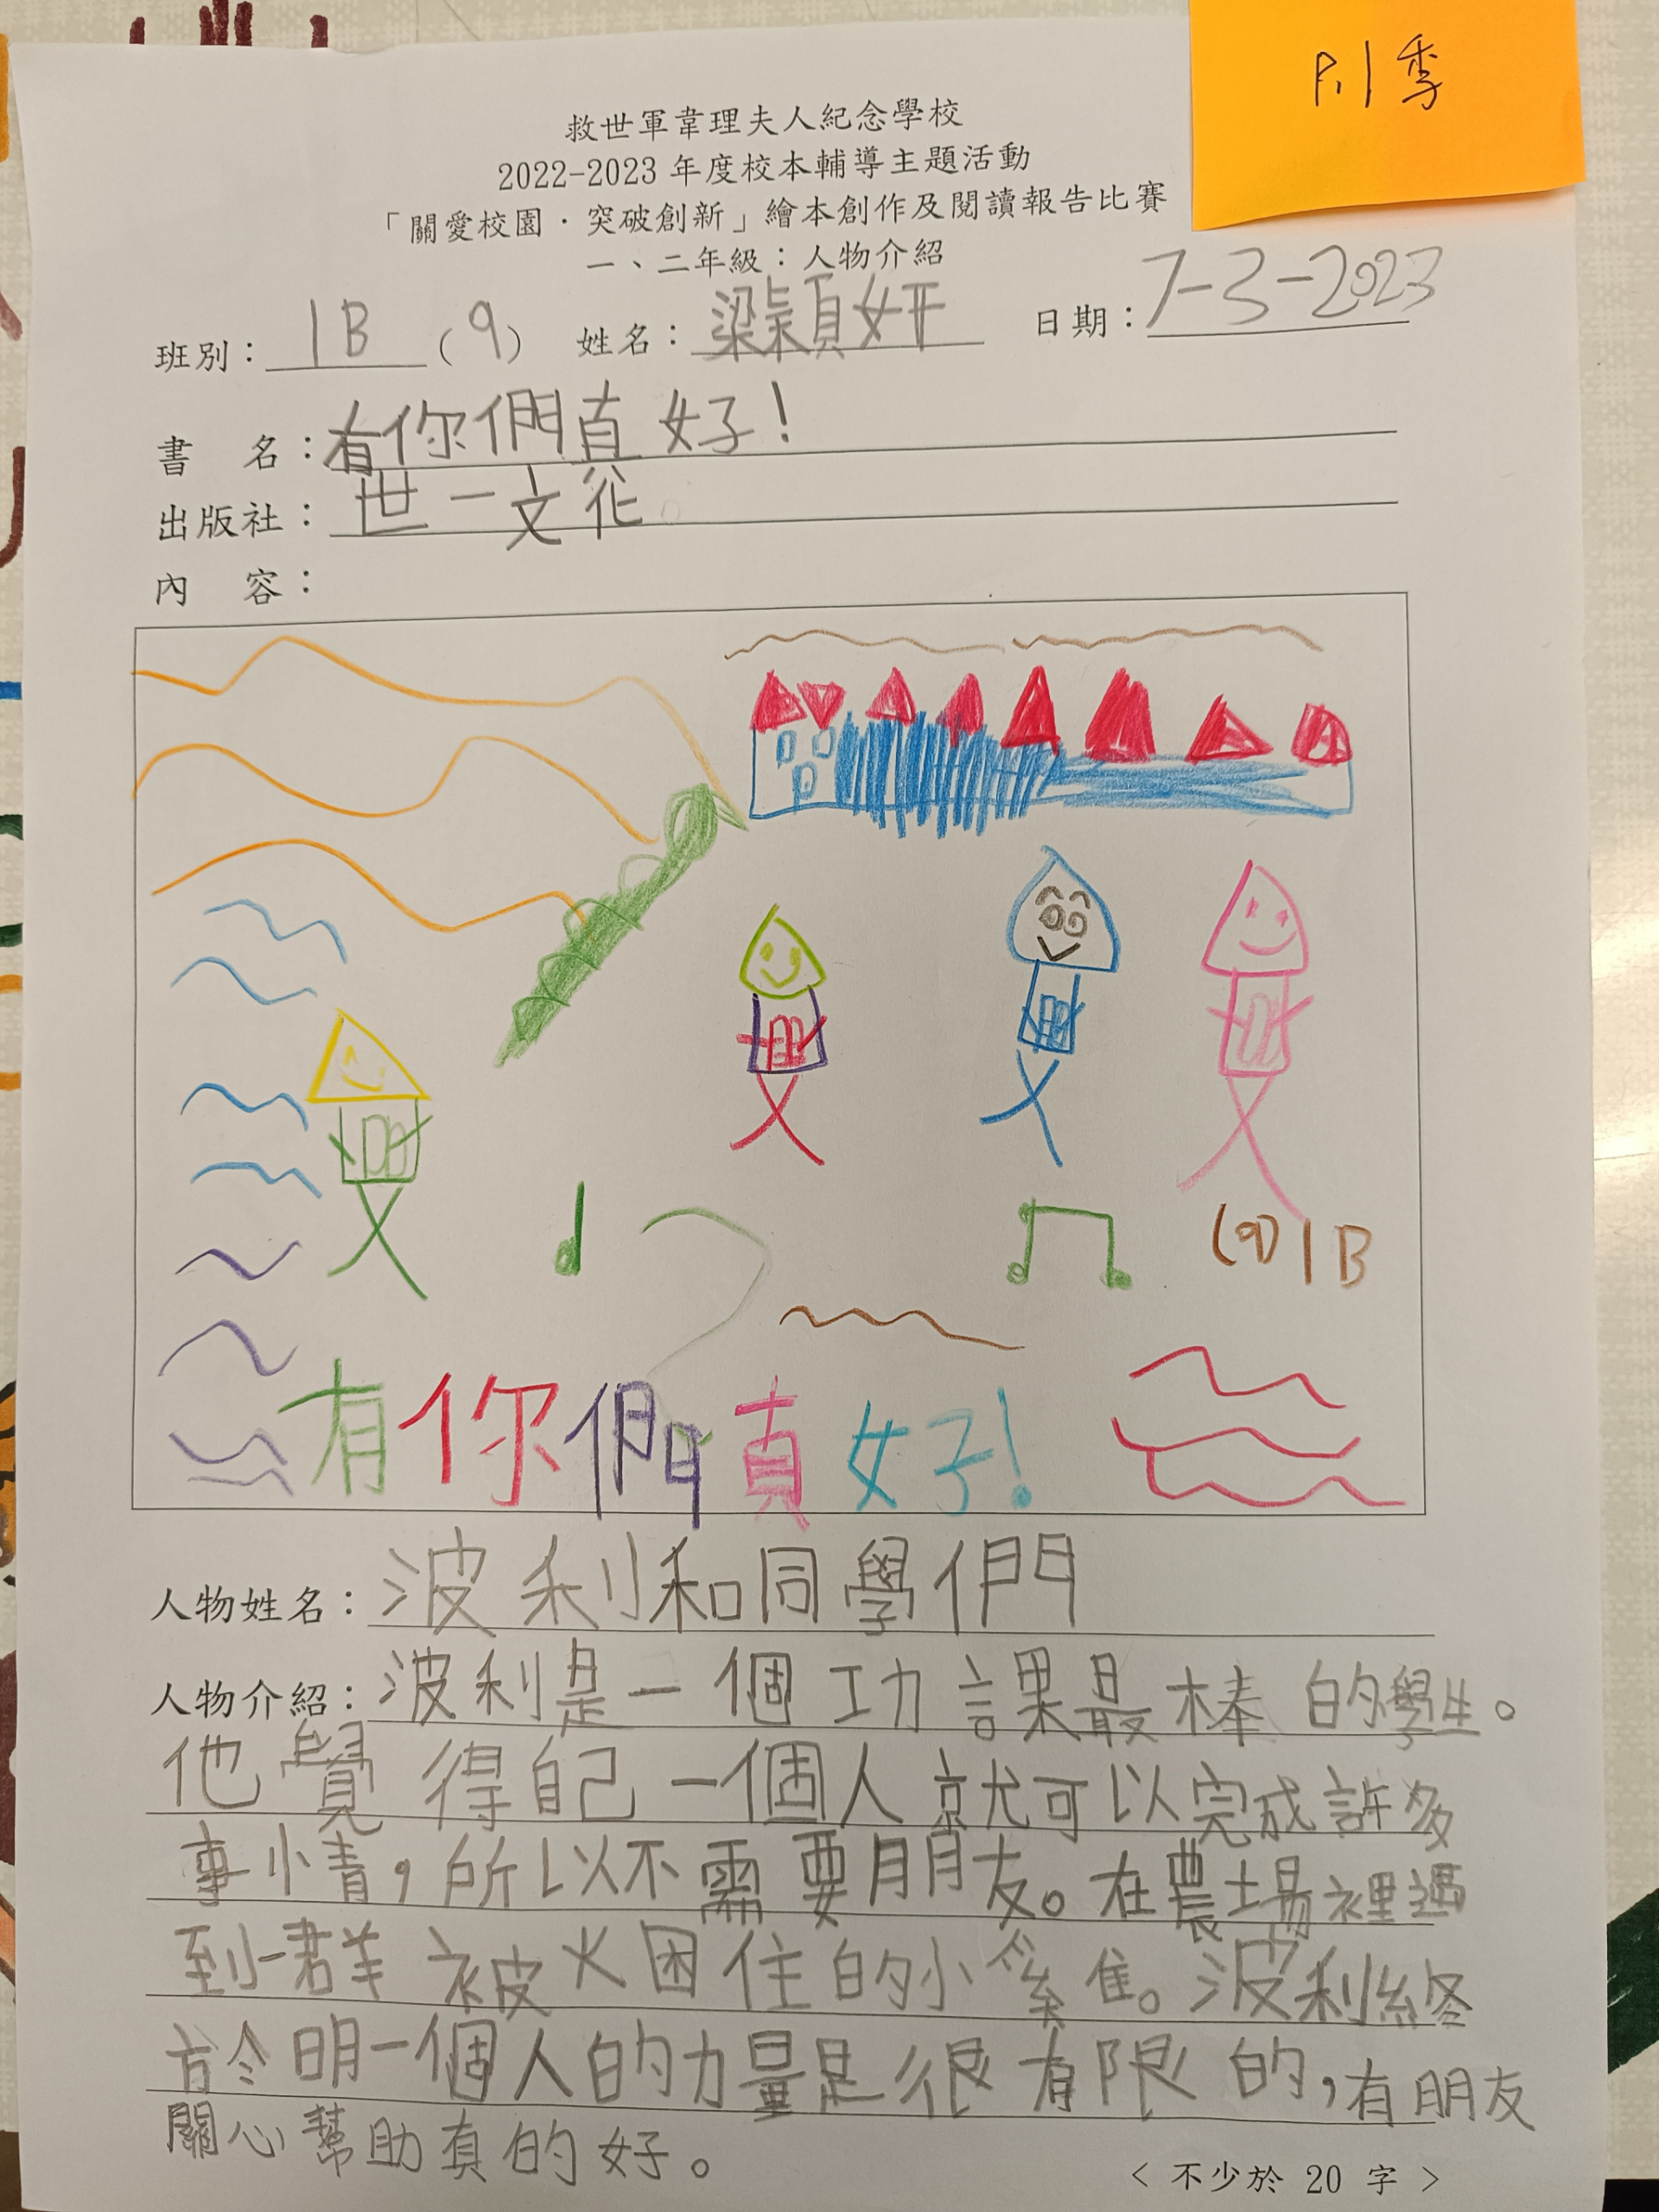 P.1 季
救世軍韋理夫人紀念學校
2022-2023 年度校本輔導主題活動
「關愛校園．突破創新」繪本創作及閱讀報告比賽
一、二年級：人物介紹
班別：1B (9) 姓名：梁穎妍 日期：7-3-2023
書 名：有你們真好！
出版社：世一文化
內 容：
(9) 1B
有你們真好！
人物姓名：波利和同學們
人物介紹：波利是一個功課最棒的學生。
他覺得自己一個人就可以完成許多
事情，所以不需要朋友。在農場裡遇
到一群被火困住的小雞。波利終
於明一個人的力量是很有限的，有朋友
關心幫助真的好。
< 不少於 20 字 >